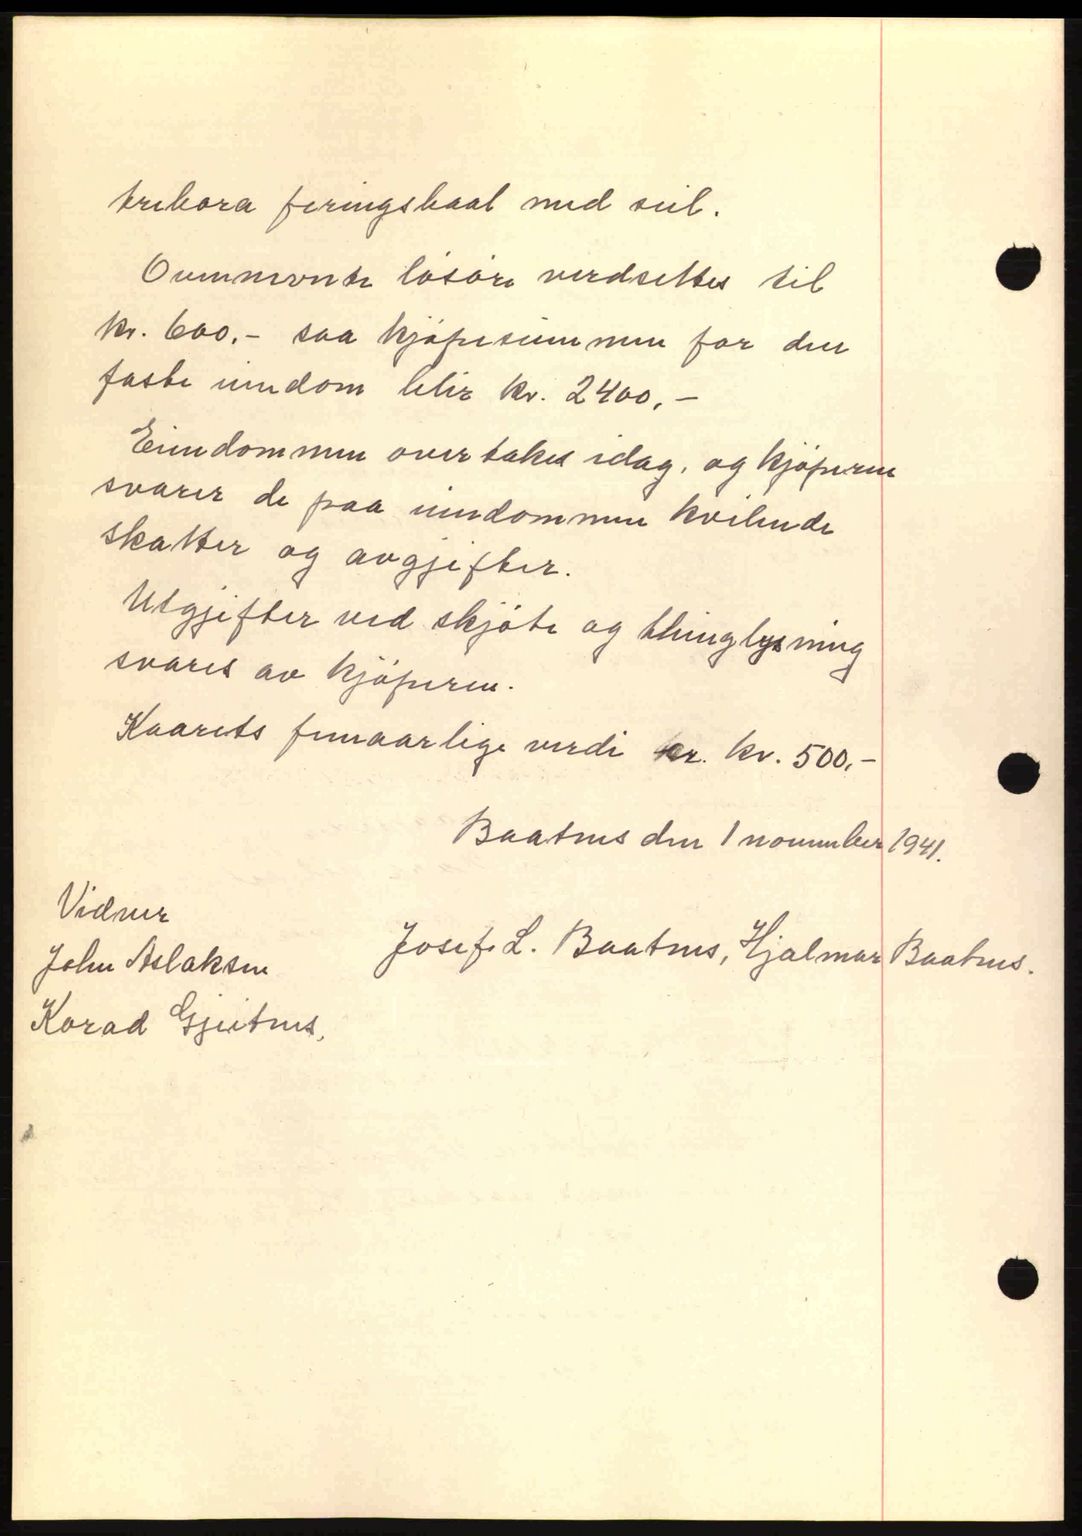 trebora feringsbaat med seil.
Ovennevnte lösöre verdsettes til
kr. 600.- saa kjöpesummen for den
faste eiendom blir kr. 2400,-
Eiendommen overtakes idag, og kjöperen
svarer de paa eiendommen hvilende
skatter og avgjifter.
Utgjifter ved skjöte og thinglysning
svares av kjöperen.
Kaarets femaarlige verdi er. kr. 500,-
Baatnes den 1 november 1941.
Vidner
John Aslaksen
Josef L. Baatnes, Hjalmar Baatnes.
Korad Gjeitnes,